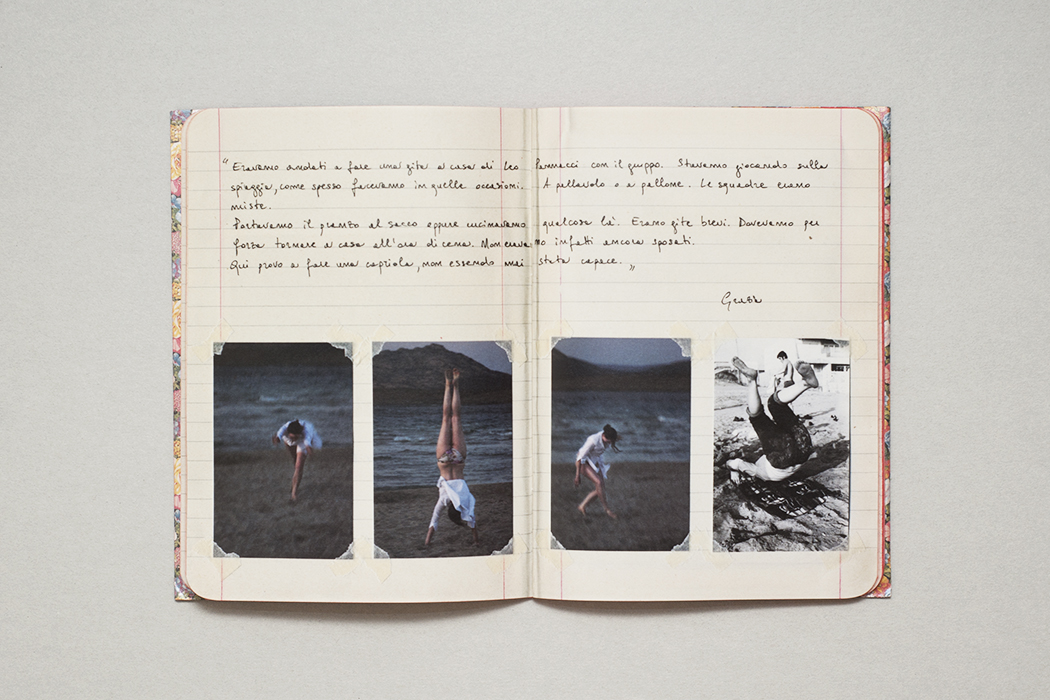 "Eravamo andati a fare una gita a casa di Leo Pannacci con il gruppo. Stavamo giocando sulla
spiaggia, come spesso facevamo in quelle occasioni. A pallavolo o a pallone. Le squadre erano
miste.
Portavamo il pranzo al sacco oppure cucinavamo qualcosa là. Erano gite brevi. Dovevamo per
forza tornare a casa all'ora di cena. Non eravamo infatti ancora sposati.
Qui provo a fare una capriola, non essendo mai stata capace."